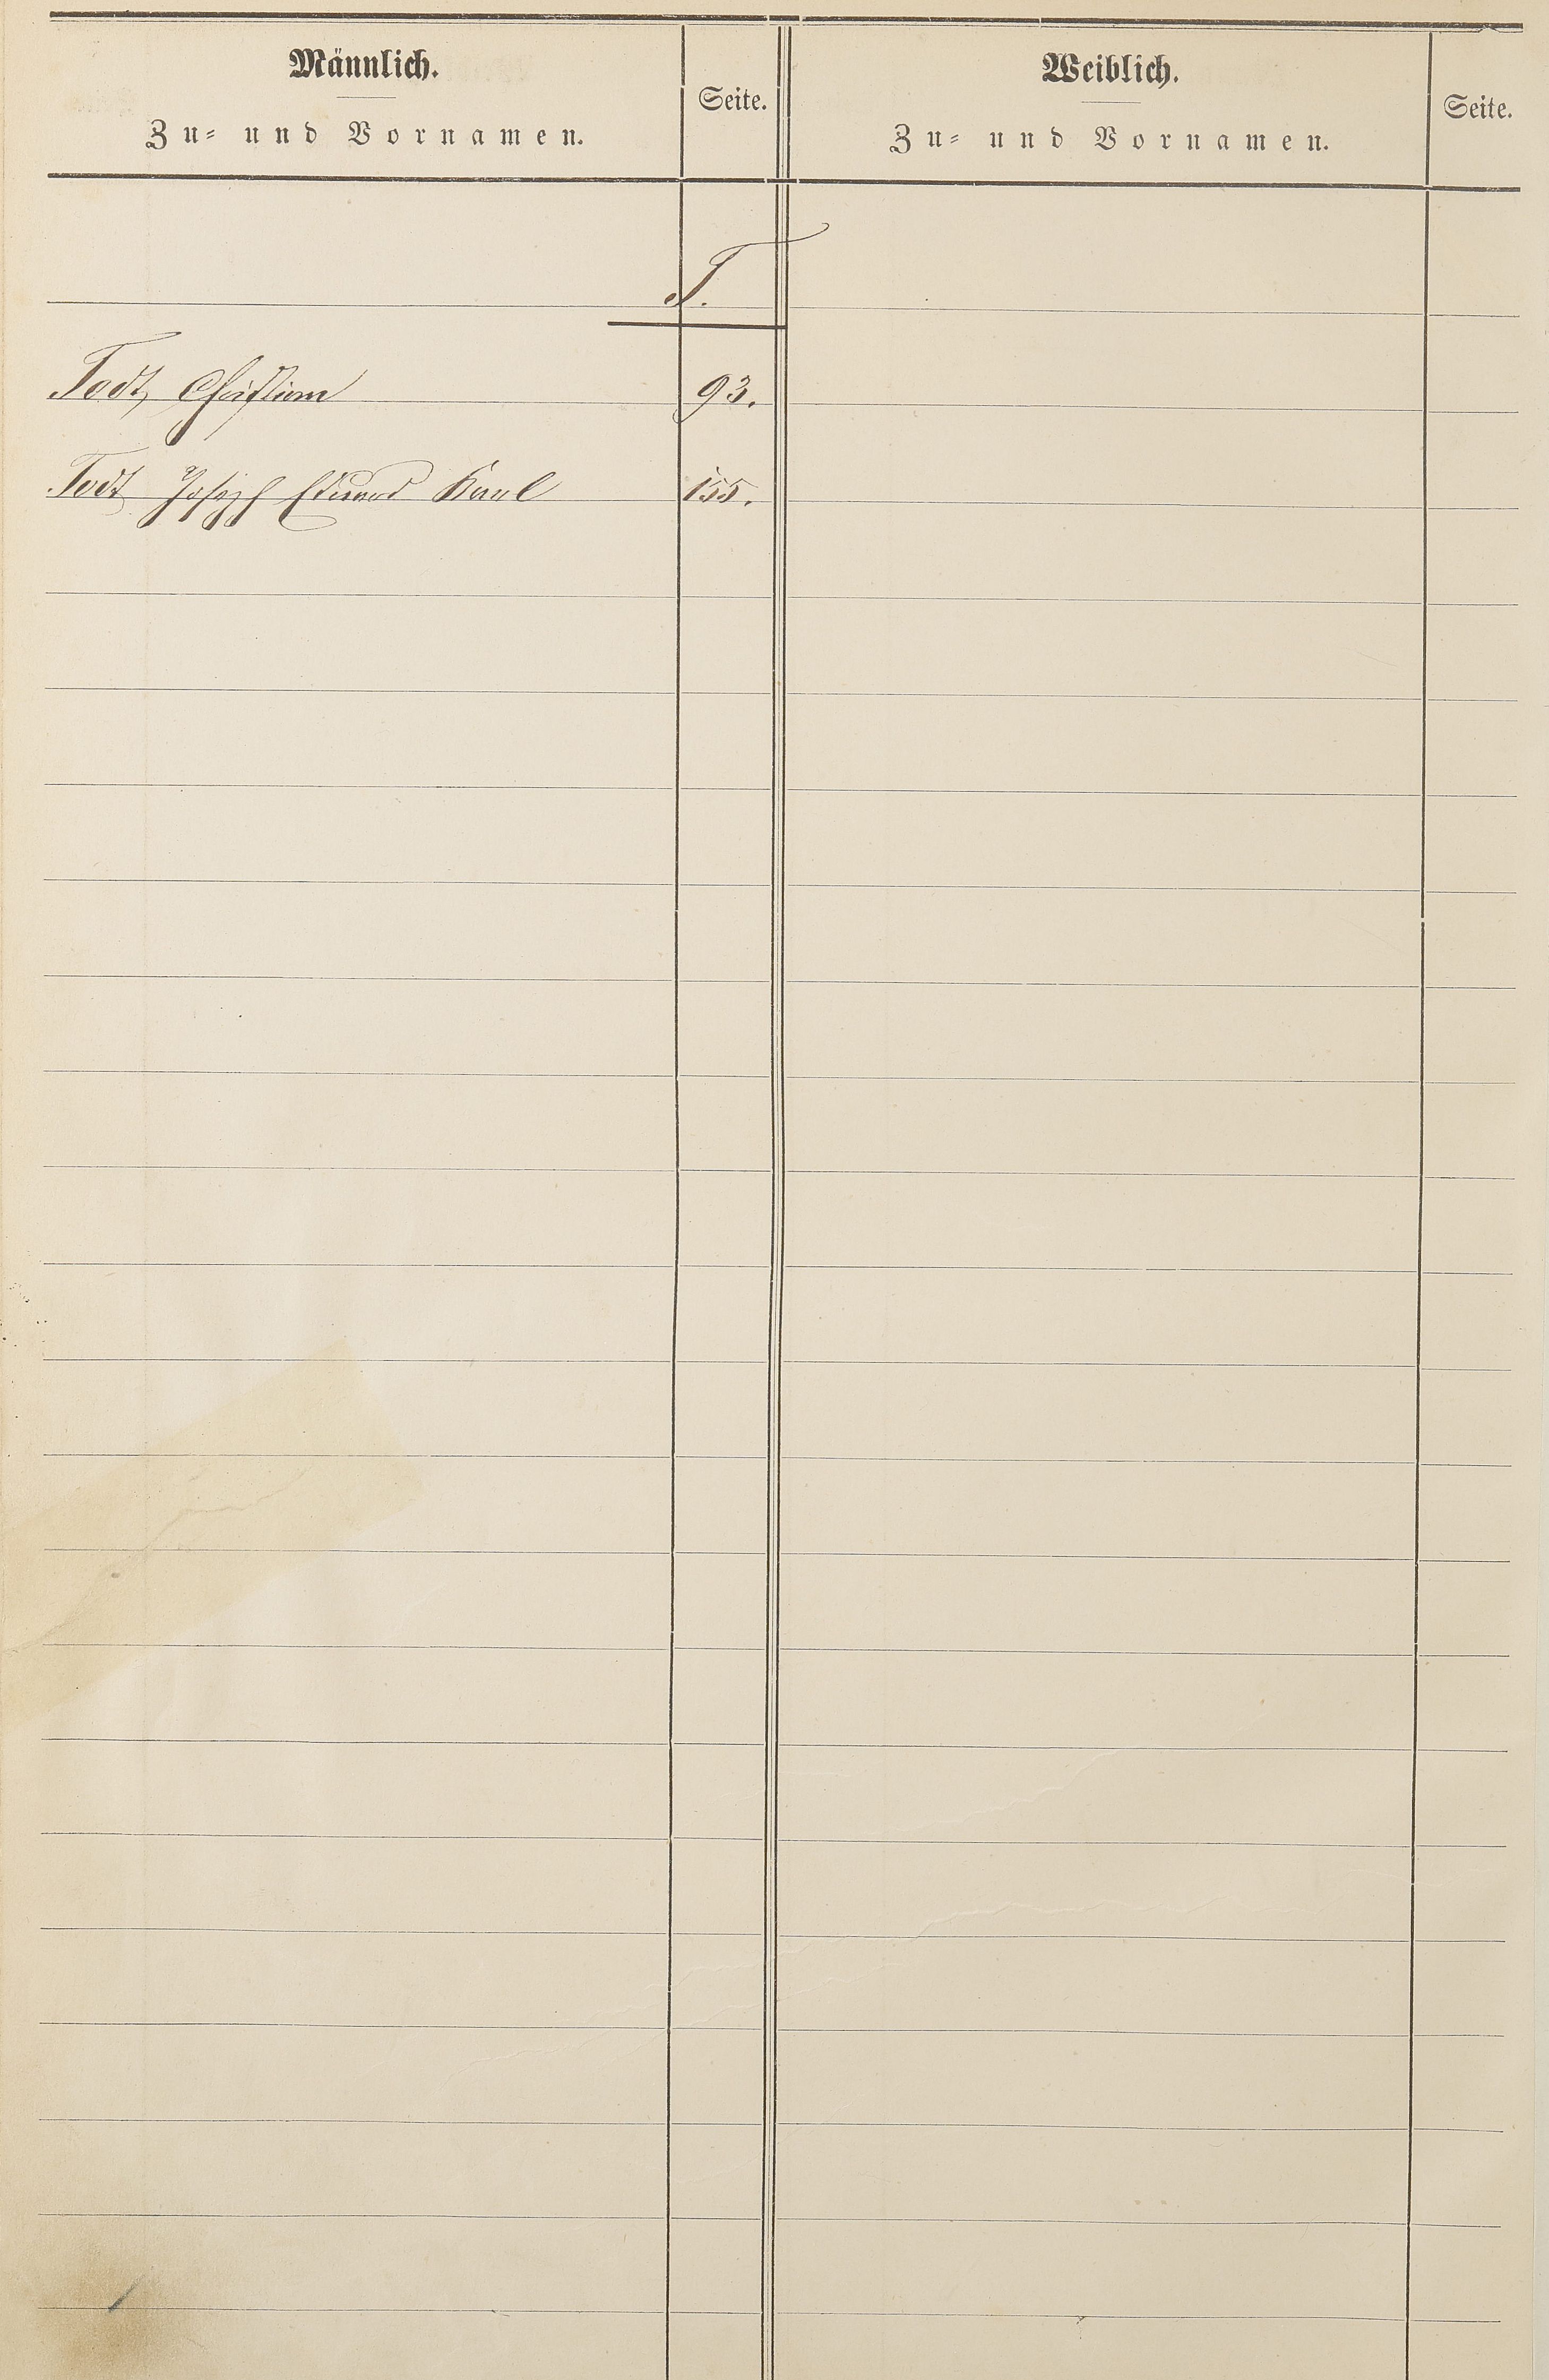 Männlich.
Zu- und Vornamen.
Seite.
Weiblich.
Zu- und Vornamen.
Seite.
T.
Todt, Christian 93.
Todt Joseph Eduard Karl 155.